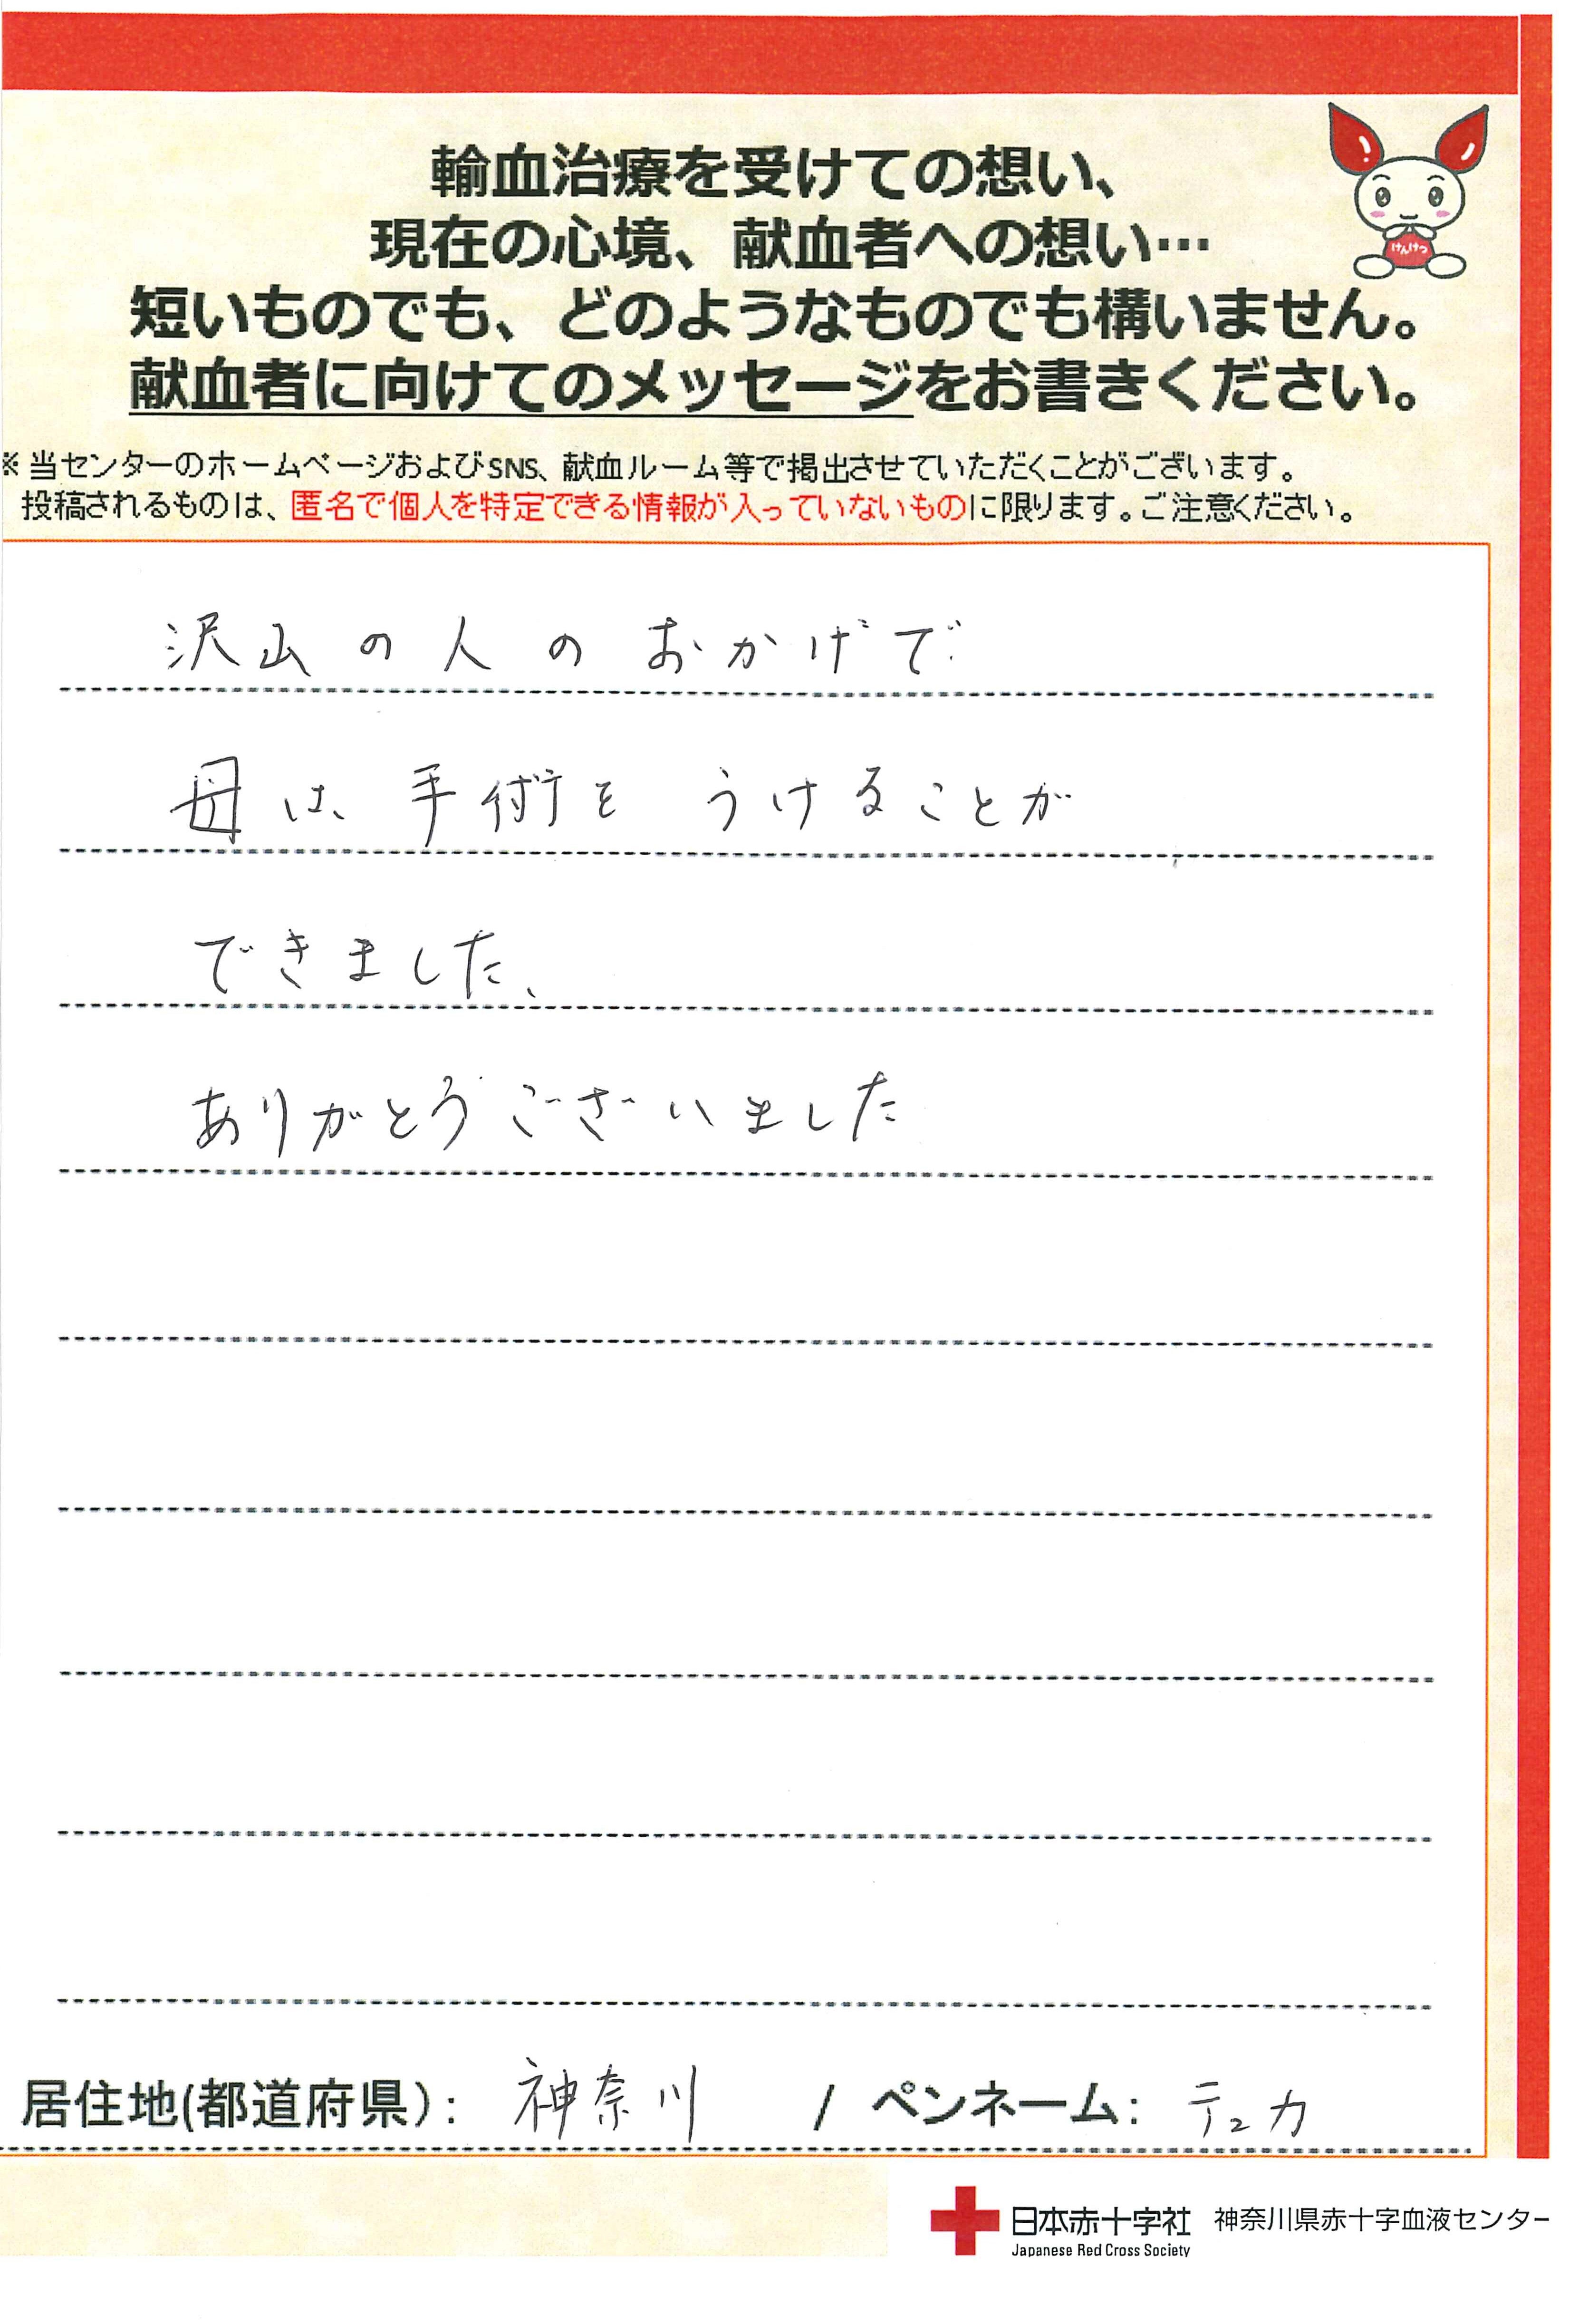 輸血治療を受けての想い、
現在の心境、献血者への想い…
短いものでも、どのようなものでも構いません。
献血者に向けてのメッセージをお書きください。
けんけつ
※当センターのホームページおよびSNS、献血ルーム等で掲出させていただくことがございます。
投稿されるものは、匿名で個人を特定できる情報が入っていないものに限ります。ご注意ください。
沢山の人のおかげで
母は、手術をうけることが
できました、
ありがとうございました
居住地(都道府県)： 神奈川 / ペンネーム： テュカ
日本赤十字社 神奈川県赤十字血液センター
Japanese Red Cross Society